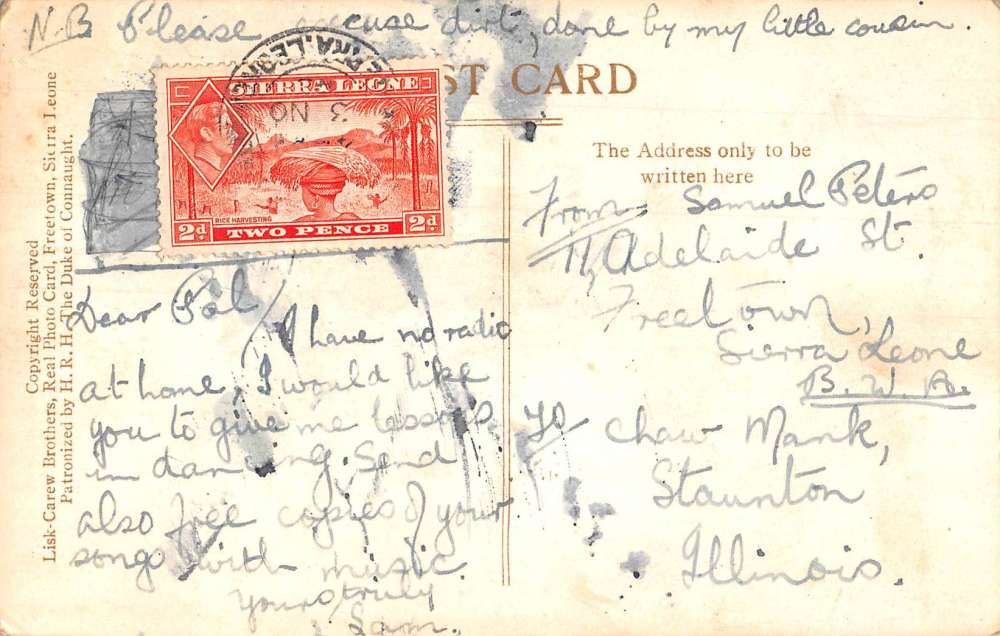 N.B Please excuse dirt, done by my little cousin.
POST CARD
SIERRA LEONE
3 NO
RICE HARVESTING
2d TWO PENCE 2d
Copyright Reserved
Lisk-Carew Brothers, Real Photo Card, Freetown, Sierra Leone
Patronized by H. R. H. The Duke of Connaught.
Dear Pal
I have no radio
at home. I would like
you to give me lessons
in dancing. Send
also free copies of your
songs with music.
yours truly
Sam.
The Address only to be
written here
From Samuel Peters
11, Adelaide St.
Freetown,
Sierra Leone
B. W. A.
To Chaw Mank,
Staunton
Illinois.